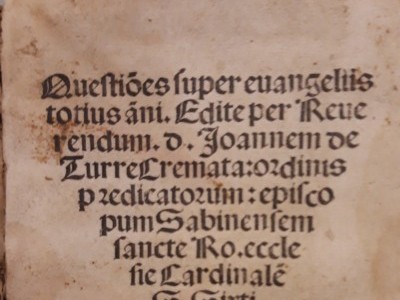 Questiões super euangeliis
totius ãni. Edite per Reue
rendum. d. Joannem de
Turre Cremata: ordinis
predicatorum: episco
pum Sabinensem
sancte Ro. eccle
sie Cardinalẽ
S. Sixti